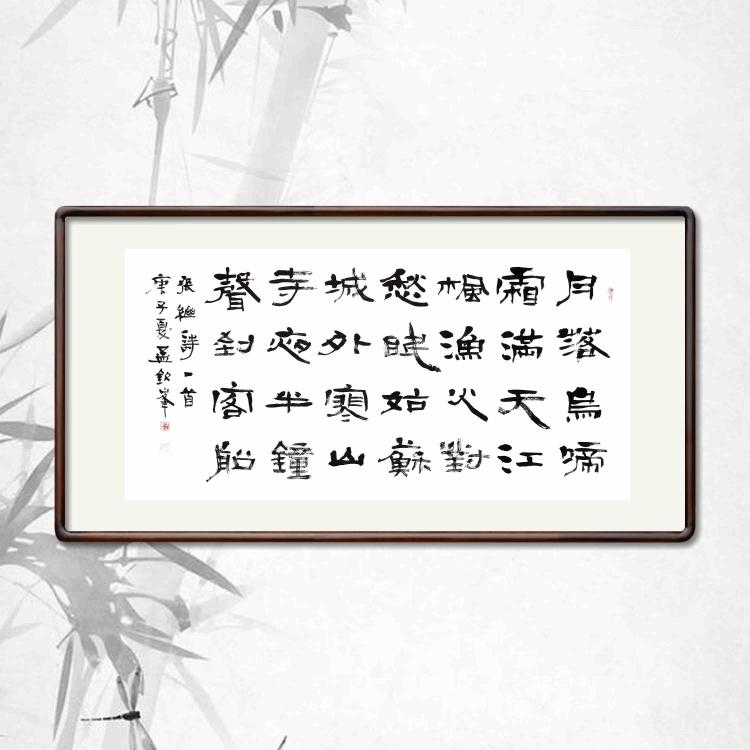 月落烏啼
霜滿天江
楓漁火對
愁眠姑蘇
城外寒山
寺夜半鐘
聲到客船
張繼詩一首
庚子夏孟欽峯